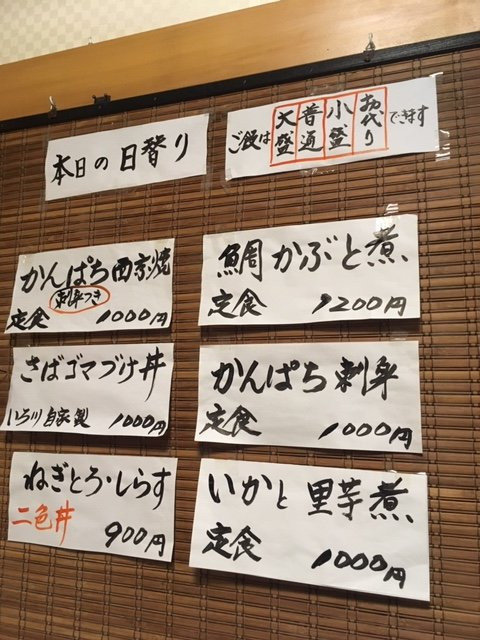 本日の日替り
ご飯は 大盛 普通 小盛 お代り できます
かんぱち西京焼
刺身つき
定食 1000円
さばゴマづけ丼
いち川自家製 1000円
ねぎとろ・しらす
二色丼 900円
鯛かぶと煮
定食 1200円
かんぱち刺身
定食 1000円
いかと里芋煮
定食 1000円